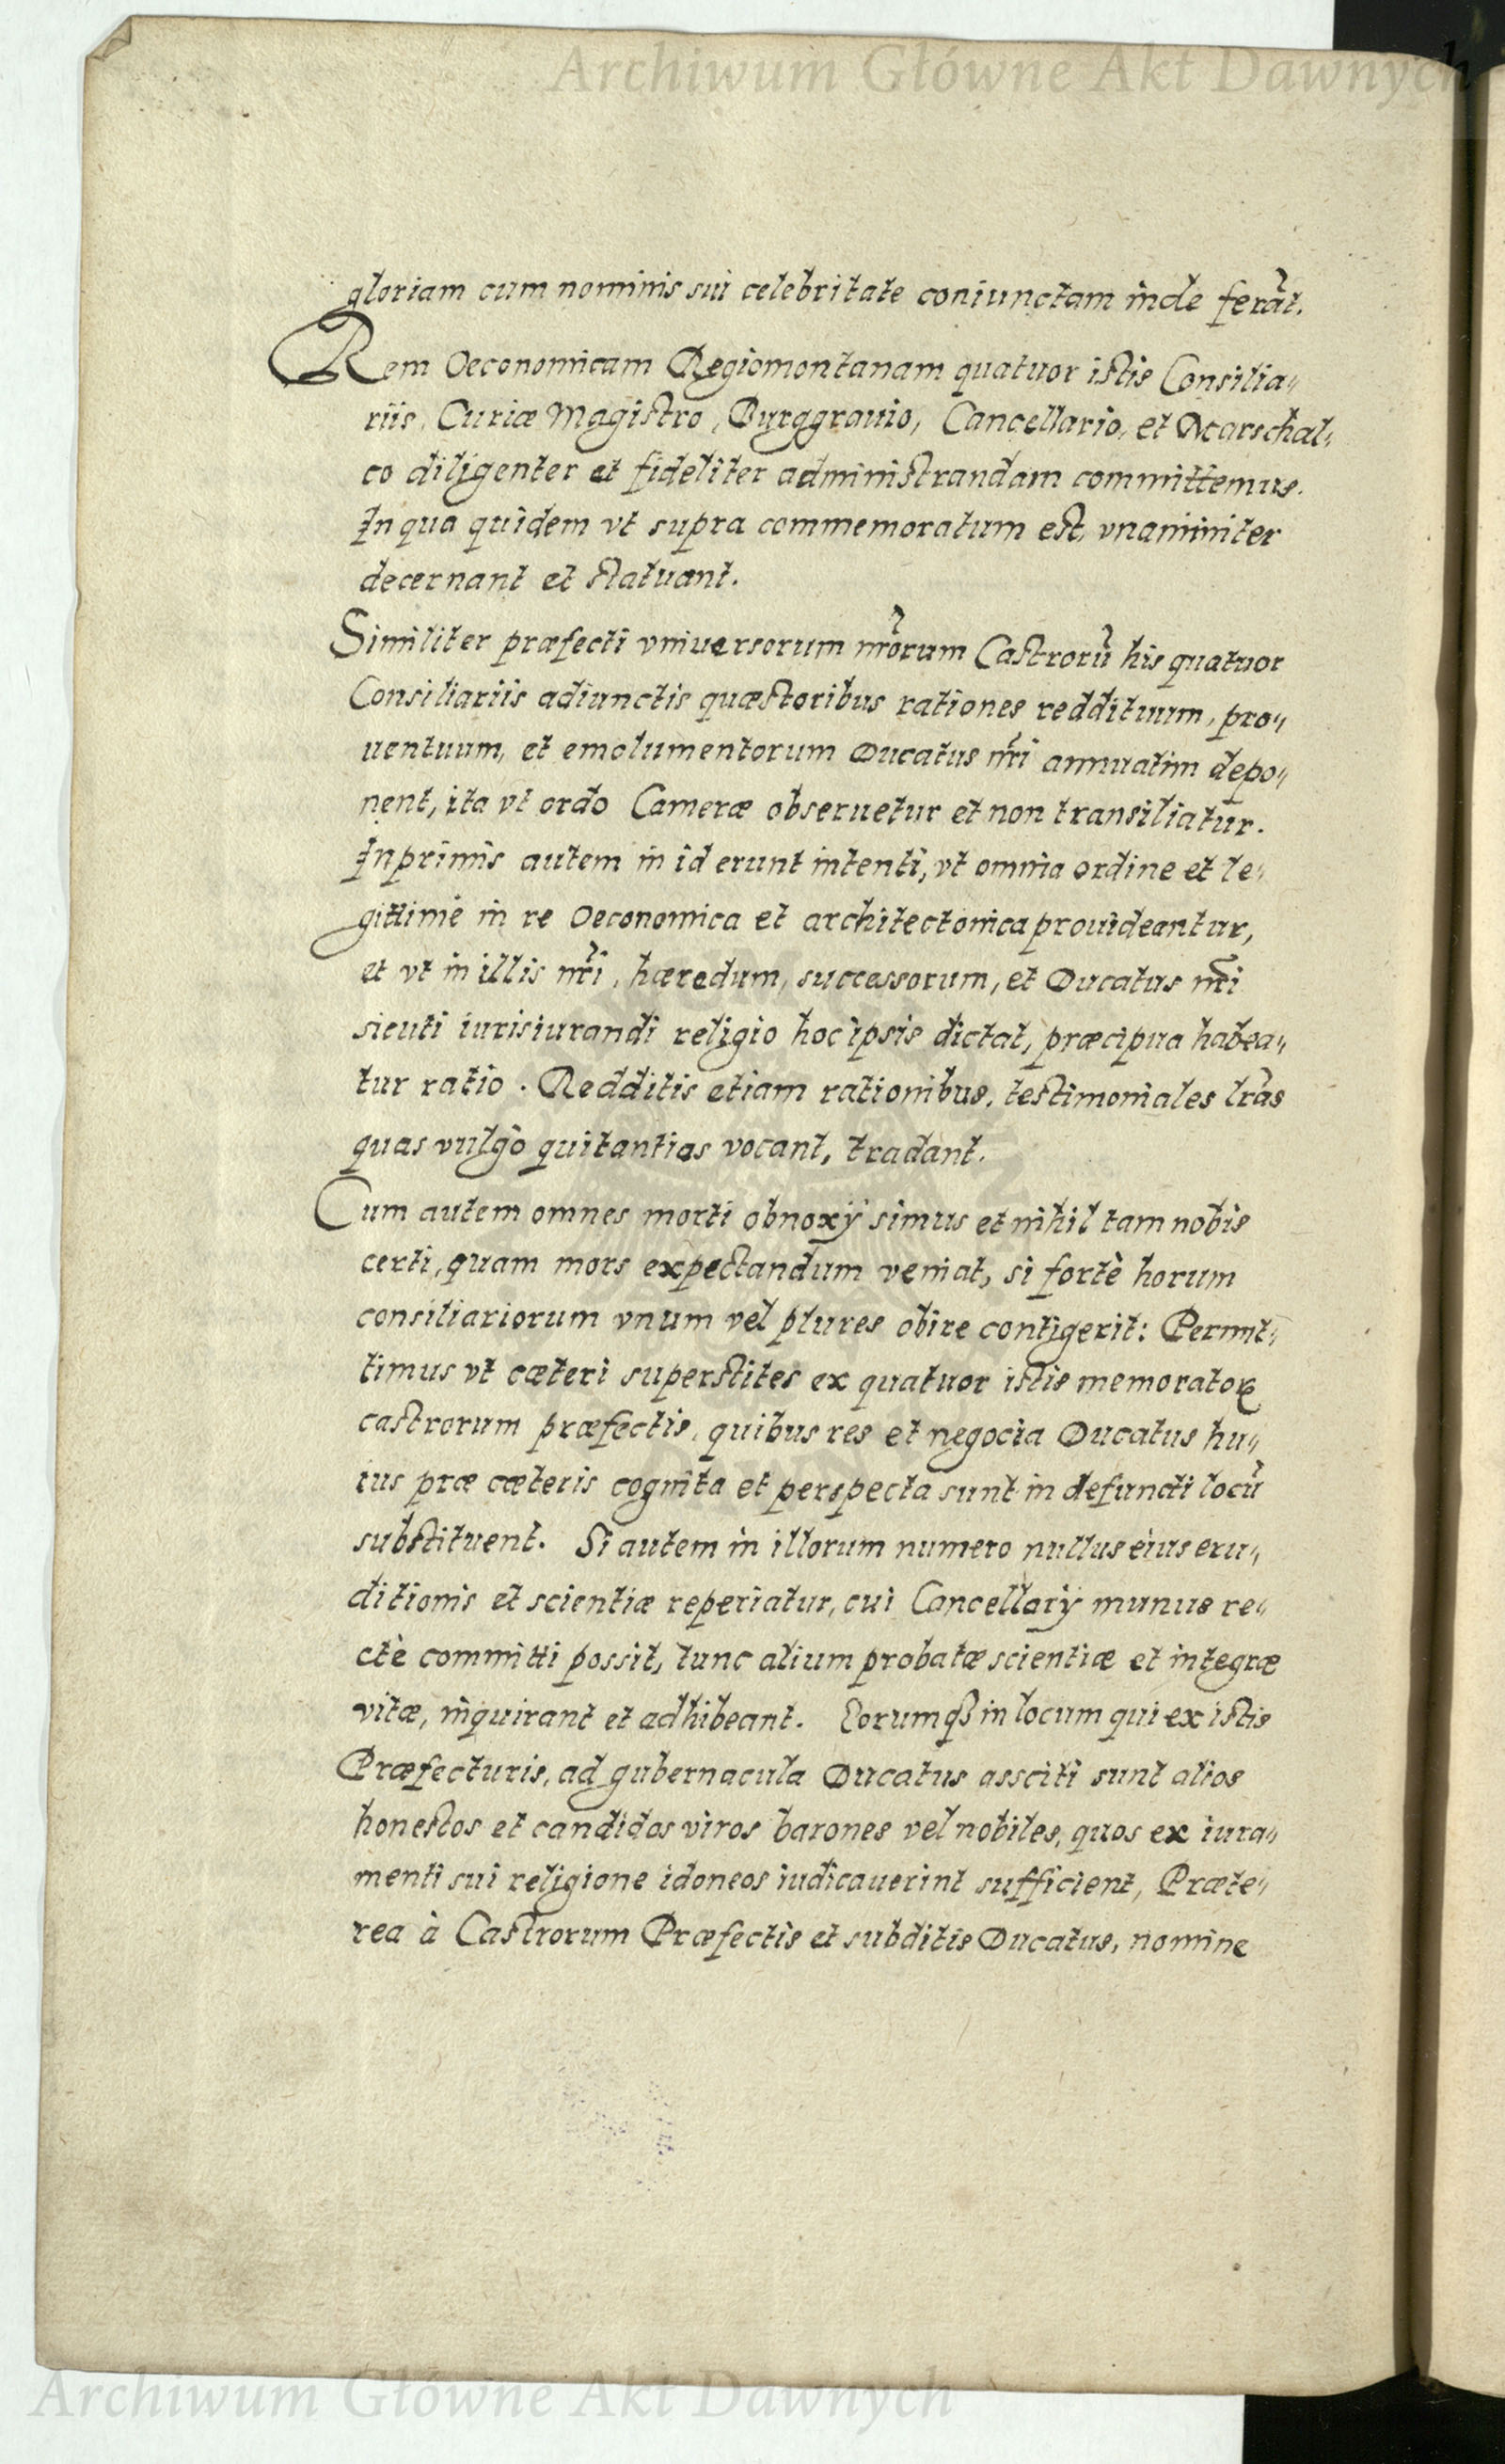 Archiwum Główne Akt Dawnych
gloriam cum nominis sui celebritate coniunctam inde ferāt.
Rem Oeconomicam Regiomontanam quatuor istis Consilia„
riis, Curiæ Magistro, Burggrauio, Cancellario, et Marschal„
co diligenter et fideliter administrandam committemus.
In qua quidem vt supra commemoratum est, vnanimiter
decernant et statuant.
Similiter præfecti vniuersorum nr̃orum Castrorū his quatuor
Consiliariis adiunctis quæstoribus rationes reddituum, pro„
uentuum, et emolumentorum Ducatus nr̃i annuatim depo„
nent, ita vt ordo Cameræ obseruetur et non transiliatur.
Inprimis autem in id erunt intenti, vt omnia ordine et le„
gittimè in re Oeconomica et architectonica prouideantur,
et vt in illis nr̃i, hæredum, successorum, et Ducatus nr̃i
sicuti iurisiurandi religio hoc ipsis dictat, præcipua habea„
tur ratio. Redditis etiam rationibus, testimoniales lr̃as
quas vulgò quitantias vocant, tradant.
Cum autem omnes morti obnoxÿ simus et nihil tam nobis
certi, quam mors expectandum veniat, si fortè horum
consiliariorum vnum vel plures obire contigerit: Permit„
timus vt cæteri superstites ex quatuor istis memoratoꝝ
castrorum præfectis, quibus res et negocia Ducatus hu„
ius præ cæteris cognita et perspecta sunt in defuncti locū
substituent. Si autem in illorum numero nullus eius eru„
ditionis et scientiæ reperiatur, cui Cancellarÿ munus re„
ctè committi possit, tunc alium probatæ scientiæ et integræ
vitæ, inquirant et adhibeant. Eorumqꝫ in locum qui ex istis
Præfecturis, ad gubernacula Ducatus assciti sunt alios
honestos et candidos viros barones vel nobiles, quos ex iura„
menti sui religione idoneos iudicauerint sufficient, Præte„
rea à Castrorum Præfectis et subditis Ducatus, nomine
Archiwum Główne Akt Dawnych